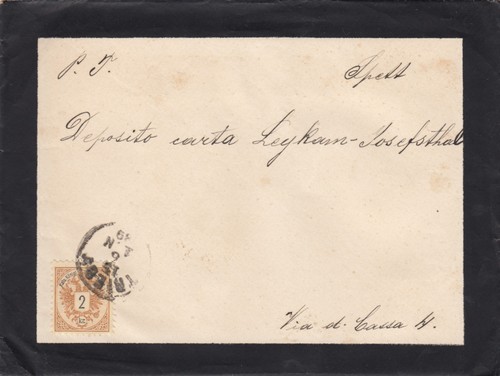 P. T. Spett
Deposito carta Leykam-Josefsthal
TRIEST
2
Via d. Cassa 4.